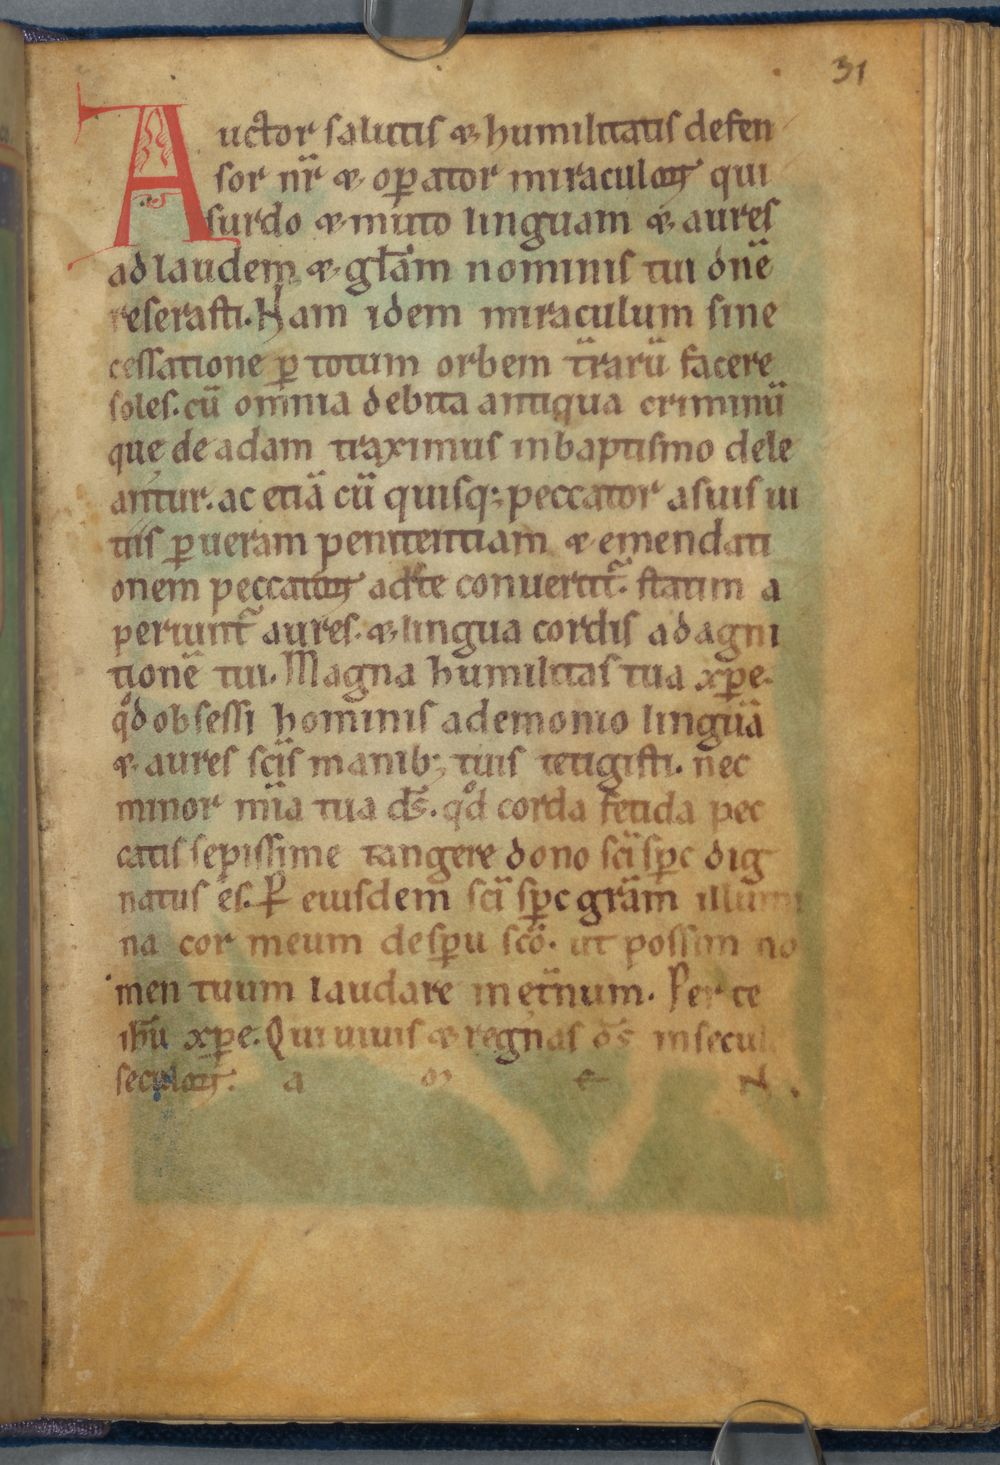 31
Auctor salutis & humilitatis defen
sor nr̄ & operator miraculoꝝ qui
surdo & muto linguam & aures
ad laudem & gl̄am nominis tui dn̄e
reserasti. Nam idem miraculum sine
cessatione ꝑ totum orbem t̄rarū facere
soles. cū omnia debita antiqua criminū
quę de adam traximus in baptismo dele
antur. ac etiā cū quisq; peccator a suis ui
tiis ꝑ ueram penitentiam & emendati
onem peccatoꝝ ad te conuertit᷑. statim a
periunt᷑ aures. & lingua cordis ad agni
tionē tui. Magna humilitas tua xp̄e.
qd̄ obsessi hominis a demonio linguā
& aures sc̄is manib; tuis tetigisti. nec
minor mīa tua ds̄. qd̄ corda fetida pec
catis sepissime tangere dono sc̄i sp̄c dig
natus es. P̄ eiusdem sc̄i sp̄c gr̄am illumi
na cor meum de sp̄u sc̄o. ut possim no
men tuum laudare in et̄num. Per te
ih̄u xp̄e. Qui uiuis & regnas ds̄ in secul
seculoꝝ. a m e N.